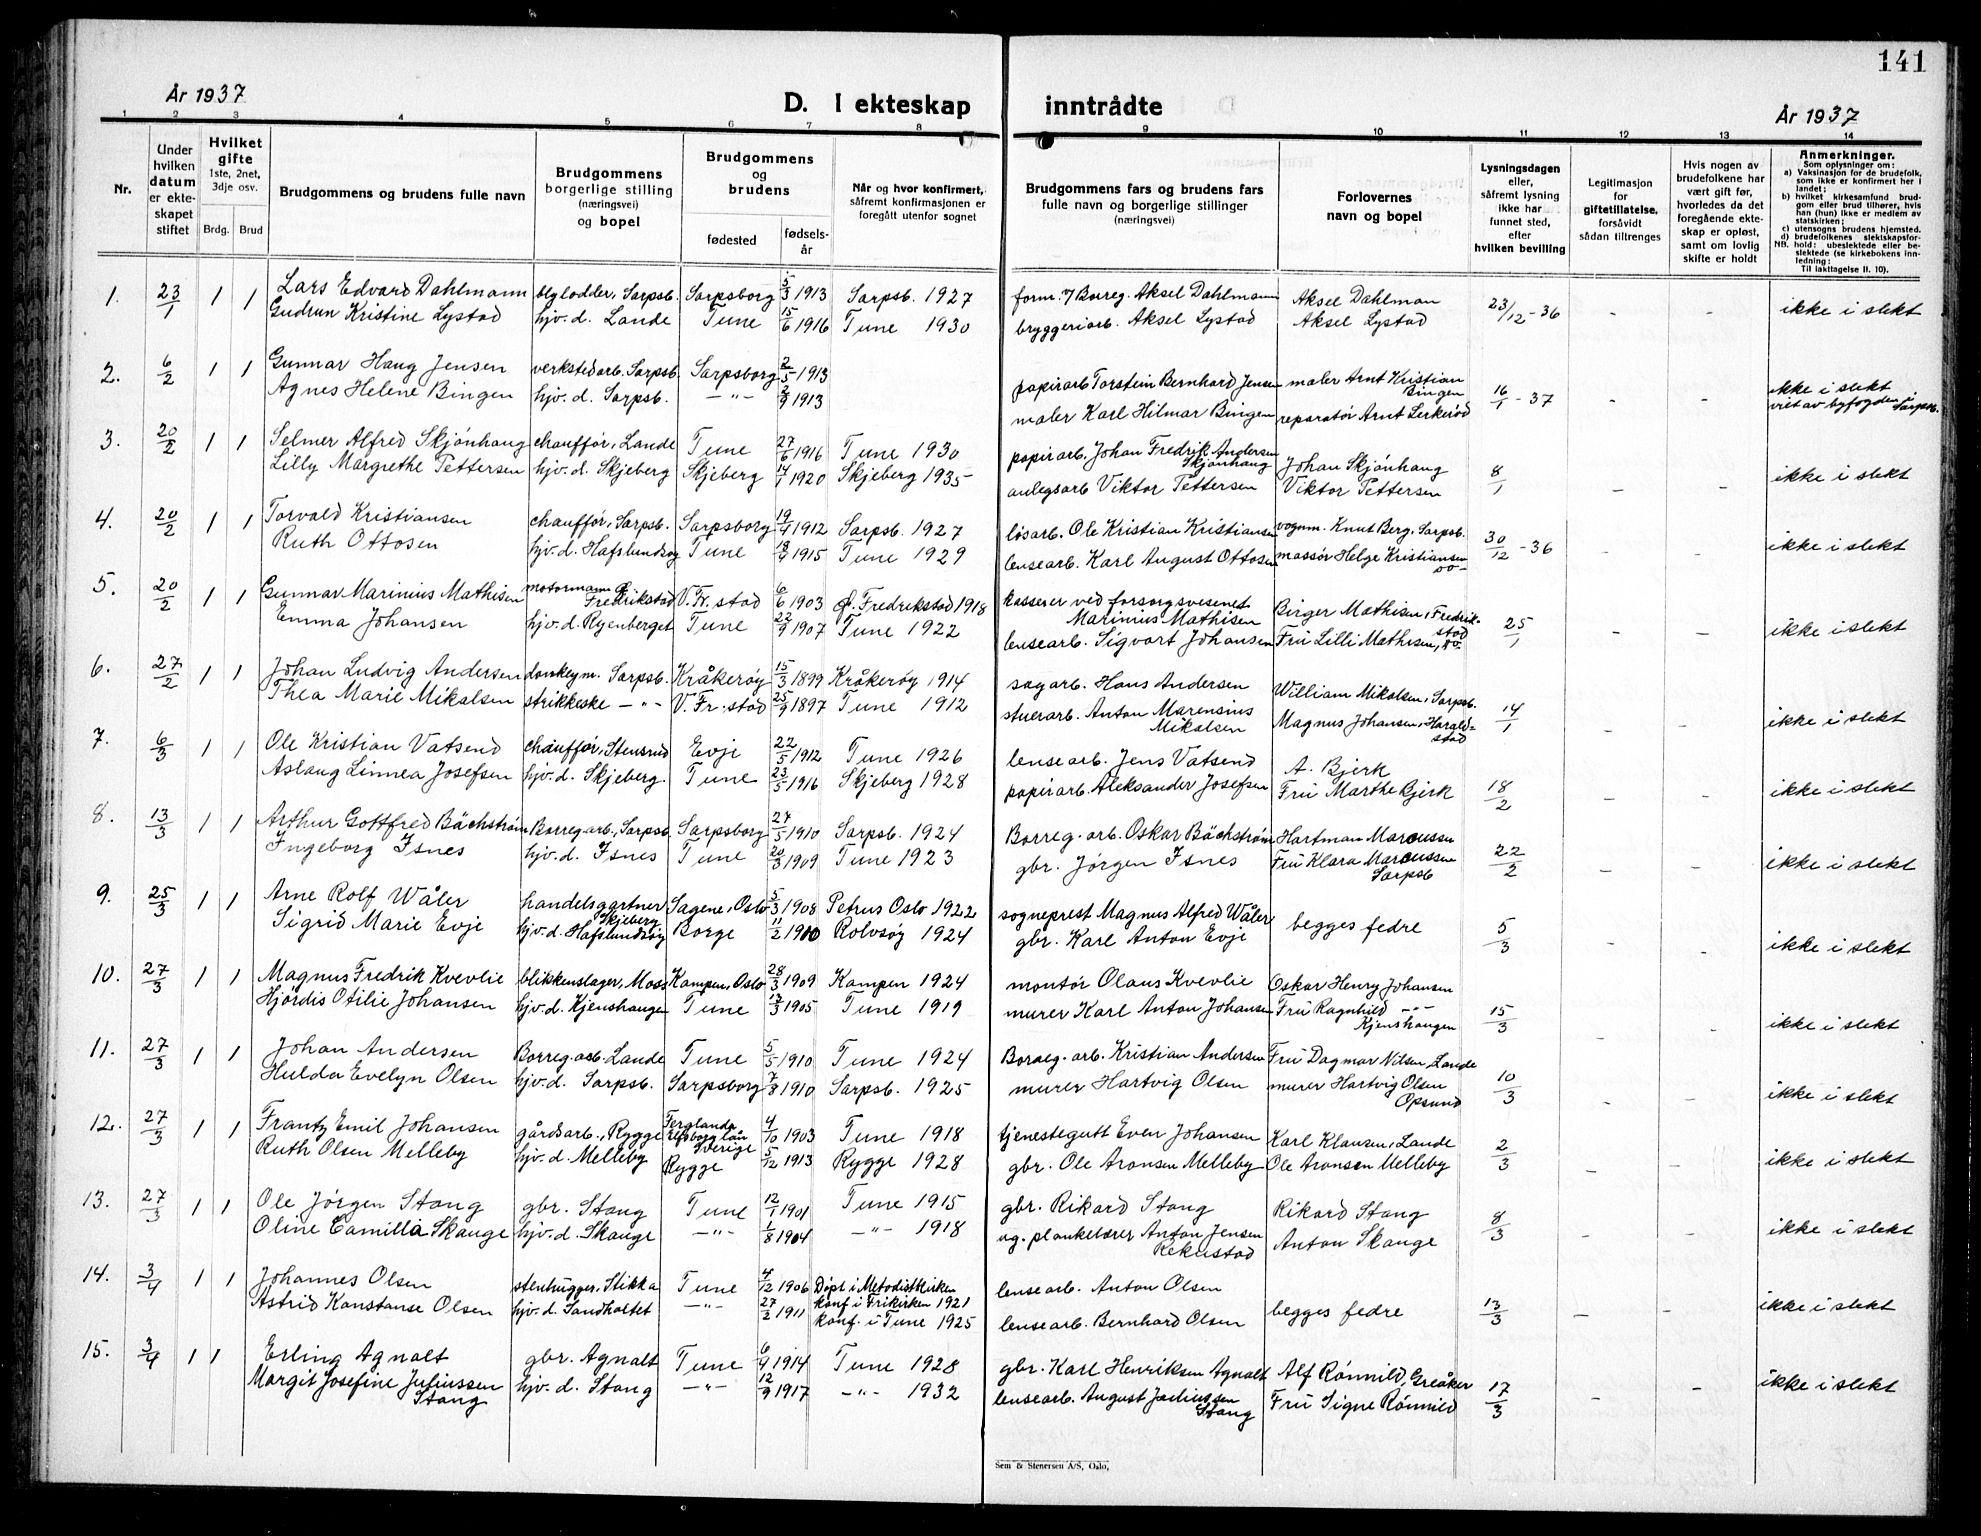 141
År 1937
D. I ekteskap inntrådte
År 1937
1 2 3 4 5 6 7 8 9 10 11 12 13 14
Nr.
Under hvilken datum er ekteskapet stiftet
Hvilket gifte 1ste, 2net, 3dje osv.
Brdg. Brud
Brudgommens og brudens fulle navn
Brudgommens borgerlige stilling (næringsvei) og bopel
Brudgommens og brudens
fødested
fødselsår
Når og hvor konfirmert, såfremt konfirmasjonen er foregått utenfor sognet
Brudgommens fars og brudens fars fulle navn og borgerlige stillinger (næringsvei)
Forlovernes navn og bopel
Lysningsdagen eller, såfremt lysning ikke har funnet sted, efter hvilken bevilling
Legitimasjon for giftetillatelse, forsåvidt sådan tiltrenges
Hvis nogen av brudefolkene har vært gift før, hvorledes da det foregående ekteskap er opløst, samt om lovlig skifte er holdt
Anmerkninger.
Som oplysninger om:
a) Vaksinasjon for de brudefolk, som ikke er konfirmert her i landet;
b) hvilket kirkesamfund brudgom eller brud tilhører, hvis han (hun) ikke er medlem av statskirken;
c) utensogns brudens hjemsted.
d) brudefolkenes slektskapsforhold: ubeslektede eller beslektede (se kirkebokens innledning:
NB. Til iakttagelse II. 10).
1. 23/1 1 1 Lars Edvard Dahlmann bylodder, Sarpsb. Sarpsborg 5/3 1913 Sarpsb. 1927 form. 7 Borreg. Aksel Dahlmann Aksel Dahlman 23/12-36 - - ikke i slekt
Gudrun Kristine Lystad hjv. d. Lande Tune 15/6 1916 Tune 1930 bryggeriarb. Aksel Lystad Aksel Lystad
2. 6/2 1 1 Gunnar Haug Jensen verkstedarb. Sarpsb. Sarpsborg 2/5 1913 papirarb Torstein Bernhard Jensen maler Arnt Kristian Bingen 16/1-37 - - ikke i slekt
Agnes Helene Bingen hjv. d. Sarpsb. -"- 2/9 1913 maler Karl Hilmar Bingen reparatør Arnt Lerkerød viet av byfogden i Sarpsb.
3. 20/2 1 1 Selmer Alfred Skjønhaug chauffør, Lande Tune 27/6 1916 Tune 1930 papirarb. Johan Fredrik Andersen Skjønhaug Johan Skjønhaug 8/1 - - ikke i slekt
Lilly Margrethe Pettersen hjv. d. Skjeberg Skjeberg 14/1 1920 Skjeberg 1935 anlegsarb Viktor Pettersen Viktor Pettersen
4. 20/2 1 1 Torvald Kristiansen chauffør, Sarpsb. Sarpsborg 19/9 1912 Sarpsb. 1927 løsarb. Ole Kristian Kristiansen vognm. Knut Berg, Sarpsb. 30/12-36 - - ikke i slekt
Ruth Ottosen hjv. d. Hafslundsøy Tune 18/9 1915 Tune 1929 lensearb. Karl August Ottosen massør Helge Kristiansen do-
5. 20/2 1 1 Gunnar Marinius Mathisen motormann Ø. Fredrikstad V. Fr. stad 6/6 1903 Ø. Fredrikstad 1918 kasserer ved forsorgsvesenet Marinius Mathisen Birger Mathisen, Fredrikstad 25/1 - - ikke i slekt
Emma Johansen hjv. d. Ryenberget Tune 22/9 1907 Tune 1922 lensearb. Sigvart Johansen Fru Lilli Mathisen, do-
6. 27/2 1 1 Johan Ludvig Andersen donkeym. Sarpsb. Kråkerøy 15/3 1899 Kråkerøy 1914 sagarb. Hans Andersen William Mikalsen, Sarpsb. 14/1 - - ikke i slekt
Thea Marie Mikalsen strikkeske -"- V. Fr. stad 25/9 1897 Tune 1912 stuerarb. Anton Marensius Mikalsen Magnus Johansen, Haraldstad
7. 6/3 1 1 Ole Kristian Vatsend chauffør, Stensrud Evje 22/5 1912 Tune 1926 lensearb. Jens Vatsend A. Bjerk 18/2 - - ikke i slekt
Aslaug Linnea Josefsen hjv. d. Skjeberg. Tune 23/5 1916 Skjeberg 1928 papirarb. Aleksander Josefsen Fru Marthe Bjerk
8. 13/3 1 1 Arthur Gottfred Bächstrøm Borreg arb., Sarpsb. Sarpsborg 27/5 1910 Sarpsb. 1924 Borreg. arb. Oskar Bächstrøm Hartman Marcussen 22/2 - - ikke i slekt
Ingeborg Isnes hjv. d. Isnes Tune 20/3 1909 Tune 1923 gbr. Jørgen Isnes Fru Klara Marcussen Sarpsb
9. 25/3 1 1 Arne Rolf Wåler handelsgartner Skjeberg Sagene, Oslo 5/3 1908 Petrus Oslo 1922 sogneprest Magnus Alfred Wåler begges fedre 5/3 - - ikke i slekt
Sigrid Marie Evje hjv. d. Hafslundsøy Borge 11/2 1910 Rolvsøy 1924 gbr. Karl Anton Evje
10. 27/3 1 1 Magnus Fredrik Kvevlie blikkenslager, Moss Kampen, Oslo 28/3 1909 Kampen 1924 montør Olaus Kvevlie Oskar Henry Johansen 15/3 - - ikke i slekt
Hjørdis Otilie Johansen hjv. d. Kjenshaugen Tune 13/3 1905 Tune 1919 murer Karl Anton Johansen Fru Ragnhild -"- Kjenshaugen
11. 27/3 1 1 Johan Andersen Borreg. arb. Lande Tune 5/5 1910 Tune 1924 Borreg. arb. Kristian Andersen Fru Dagmar Nilsen, Lande 10/3 - - ikke i slekt
Hulda Evelyn Olsen hjv. d. Sarpsb. Sarpsborg 7/8 1910 Sarpsb. 1925 murer Hartvig Olsen murer Hartvig Olsen Opsund
12. 27/3 1 1 Frantz Emil Johansen gårdsarb., Rygge Ferglanda Elfsborg län Sverige 4/10 1903 Tune 1918 tjenestegutt Even Johansen Karl Klausen, Lande 2/3 - - ikke i slekt
Ruth Olsen Melleby hjv. d. Melleby Rygge 5/12 1913 Rygge 1928 gbr. Ole Aronsen Melleby Ole Aronsen Melleby
13. 27/3 1 1 Ole Jørgen Stang gbr. Stang Tune 12/1 1901 Tune 1915 gbr. Rikard Stang Rikard Stang 8/3 - - ikke i slekt
Oline Camilla Skauge hjv. d. Skauge -"- 1/8 1904 -"- 1918 ug. plankebærer Anton Jensen Rekustad Anton Skauge
14. 3/4 1 1 Johannes Olsen stenhugger, Stikka Tune 4/12 1906 Døpt i Metodistkirken konf i Frikirken 1921 lensearb. Anton Olsen begges fedre 13/3 - - ikke i slekt
Astrid Konstanse Olsen hjv. d. Sandholtet -"- 27/2 1911 konf. i Tune 1925 lensearb. Bernhard Olsen
15. 3/4 1 1 Erling Agnalt gbr. Agnalt Tune 6/9 1914 Tune 1928 gbr. Karl Henriksen Agnalt Alf Rønnild, Greåker 17/3 - - ikke i slekt
Margit Josefine Juliussen Stang hjv. d. Stang -"- 12/9 1917 -"- 1932 lensearb. August Juliussen Stang Fru Signe Rønnild
Sem & Stenersen A/S, Oslo,